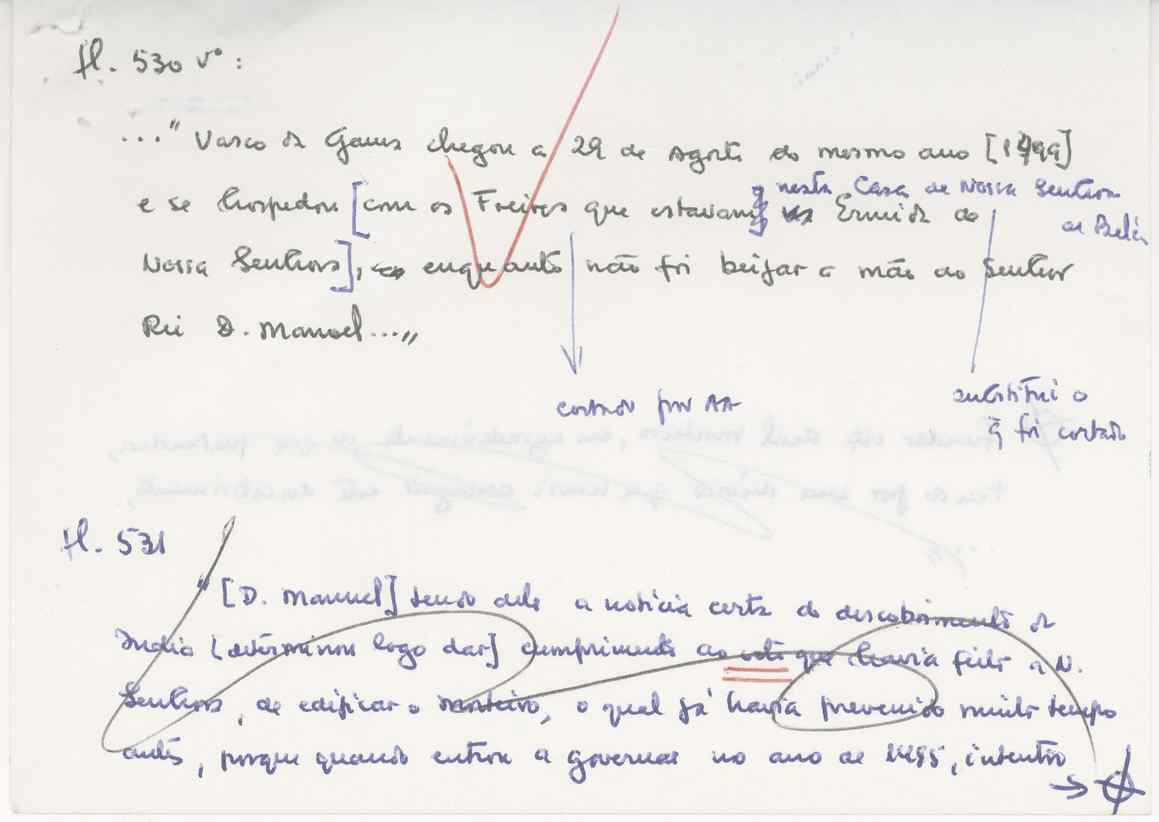 fl. 530 vº:
..." Vasco da Gama chegou a 29 de Agosto do mesmo ano [1499]
nesta Casa de Nossa Senhora
de Belém
e se hospedou [com os Freires que estavam] Ermida de
Nossa Senhora], enquanto não foi beijar a mão ao Senhor
Rei D. Manoel..."
cortado por AA
substitui o
q̃ foi cortado
fl. 531
"[D. Manuel] tendo dele a notícia certa do descobrimento da
India [determinou logo dar] cumprimento ao voto que havia feito a N.
Senhora, de edificar o mosteiro, o qual já havia prevenido muito tempo
antes, porque quando entrou a governar no ano de 1495, intentou